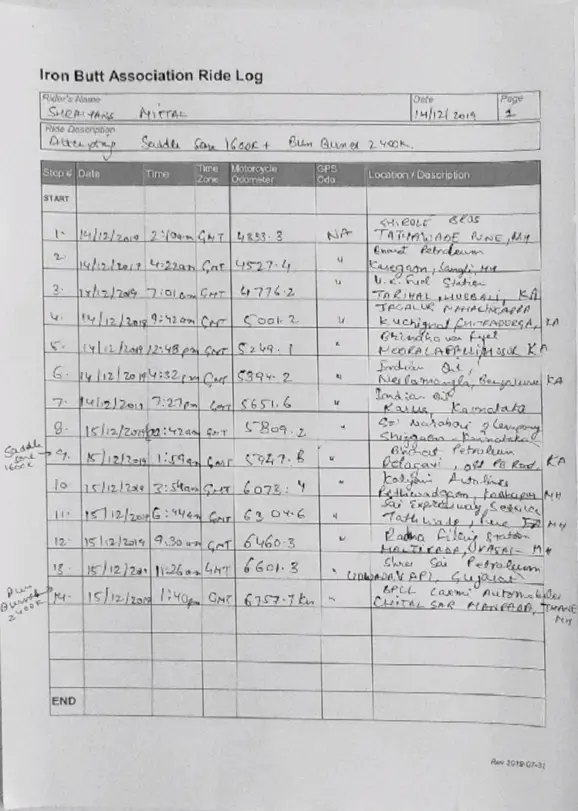 Iron Butt Association Ride Log
Rider's Name Date Page
SHREYANS MITTAL 14/12/2019 1
Ride Description
Attempting Saddle Sore 1600K + Bun Burner 2400K.
Stop # Date Time Time Zone Motorcycle Odometer GPS Odo Location / Description
START
SHIROLE BROS
1. 14/12/2019 GMT NA TATHAWADE PUNE, MH
Bharat Petroleum
2. 4:22am GMT 4527.4 " MH
Fuel Station
3. 14/12/2019 7:01am GMT 4776.2 " TARIHAL, HUBBALI, KA
4. 14/12/2019 9:42am GMT 5001.2 " CHITRADURGA, KA
Fuel
5. 14/12/2019 12:48pm GMT 5249.1 " KA
Indian Oil,
6. 14/12/2019 4:32pm GMT 5394.2 " Nelamangla, Bengaluru KA
Indian Oil
7. 14/12/2019 7:27pm GMT 5651.6 " Karnataka
Company
8. 15/12/2019 GMT 5809.2 " Shiggaon - Karnataka
Saddle Sore 1600K
Bharat Petroleum
9. 15/12/2019 1:59am GMT 5947.8 " Belagavi, Old PB Road, KA
Kalyani Autolines
10 15/12/2019 3:54am GMT 6073.4 " MH
Sai Expressway Service
11. 15/12/2019 6:44am GMT 6304.6 " Tathwade, Pune MH
Filling Station
12. 15/12/2019 9:30am GMT 6460.3 " VASAI - MH
Shree Sai Petroleum
13. 15/12/2019 11:26am GMT 6601.3 " VAPI, Gujarat
Bun Burner 2400K
BPCL Laxmi Automobiles
14. 15/12/2019 1:40pm GMT 6757.7 Km " CHITALSAR MANPADA, THANE
MH
END
Rev 2019-07-31